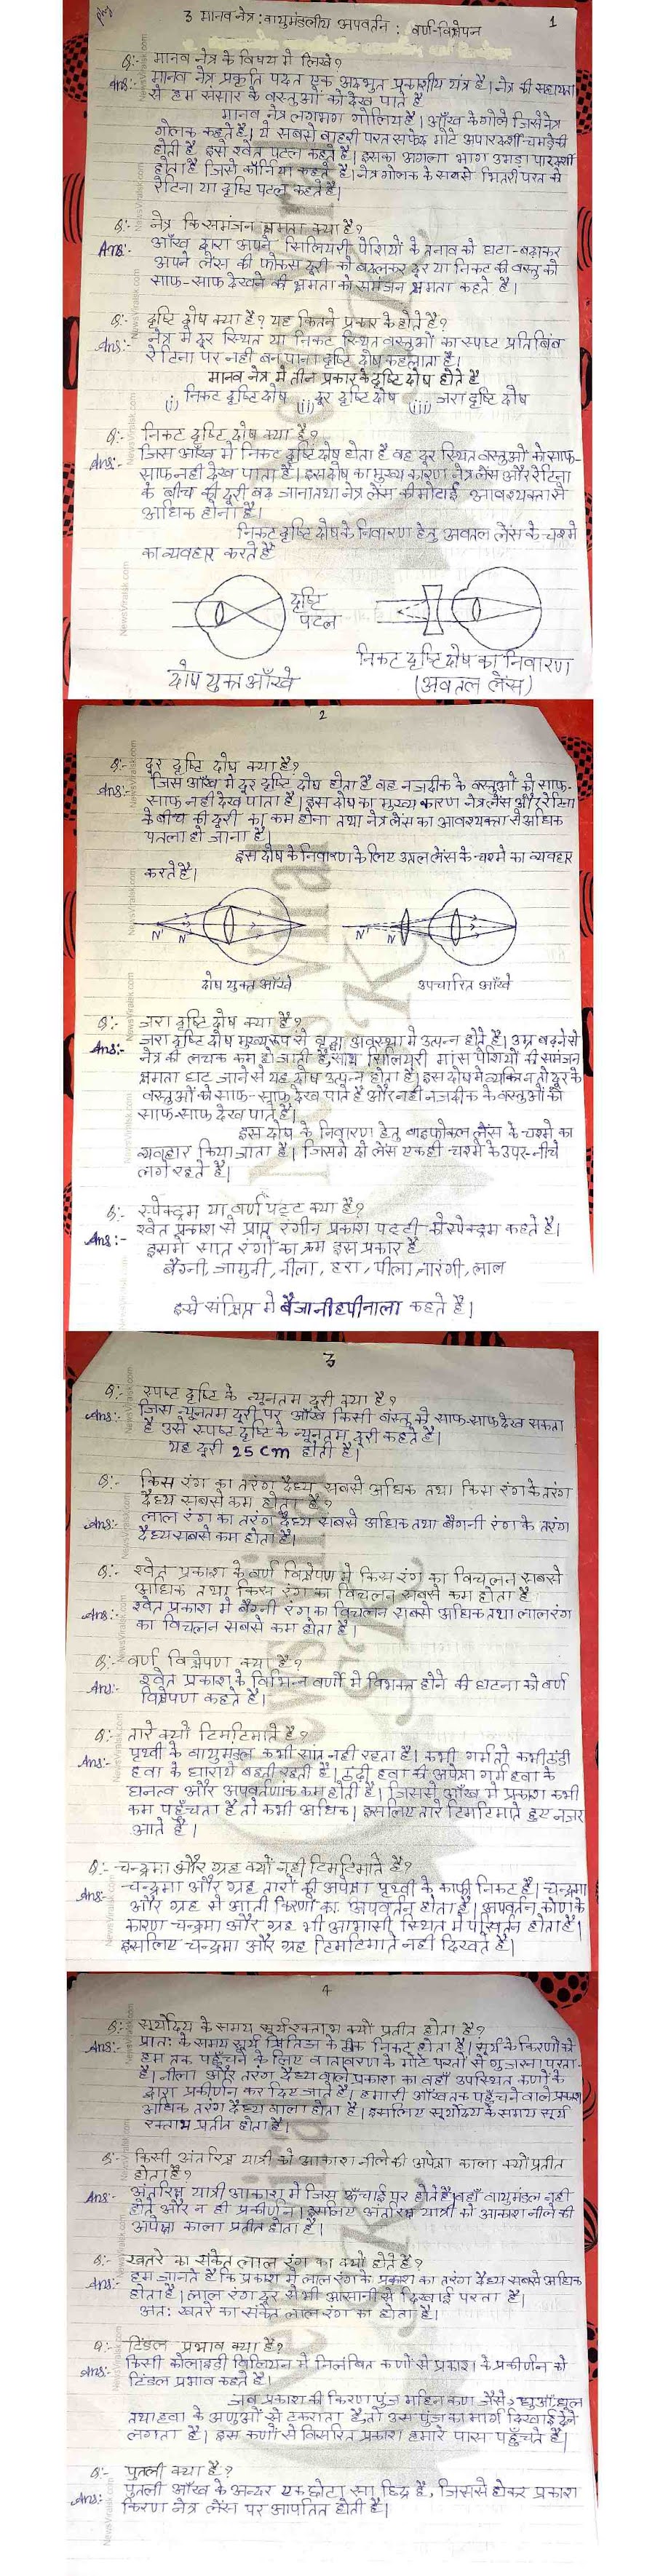 3 मानव नेत्र : वायुमंडलीय अपवर्तन : वर्ण-विक्षेपन
1
Q:- मानव नेत्र के विषय में लिखे?
Ans:- मानव नेत्र प्रकृति प्रदत एक अदभुत प्रकाशीय यंत्र है। नेत्र की सहायता
से हम संसार के वस्तुओं को देख पाते है
मानव नेत्र लगभग गोलिय है। आँख के गोले जिसे नेत्र
गोलक कहते है। ये सबसे बाहरी परत सफेद मोटे अपारदर्शी चमड़े की
होती है इसे श्वेत पटल कहते है। इसका अगला भाग उभड़ा पारदर्शी
होता है जिसे कॉर्निया कहते है। नेत्र गोलक के सबसे भितरी परत को
रेटिना या दृष्टि पटल कहते है।
Q:- नेत्र कि समंजन क्षमता क्या है?
Ans:- आँख द्वारा अपने सिलियरी पेशियों के तनाव को घटा-बढ़ाकर
अपने लेंस की फोकस दूरी को बदलकर दूर या निकट की वस्तु को
साफ-साफ देखने की क्षमता को समंजन क्षमता कहते है।
Q:- दृष्टि दोष क्या है? यह कितने प्रकार के होते है?
Ans:- नेत्र में दूर स्थित या निकट स्थित वस्तुओं का स्पष्ट प्रतिबिंब
रेटिना पर नही बन पाना दृष्टि दोष कहलाता है।
मानव नेत्र में तीन प्रकार के दृष्टि दोष होते है
(i) निकट दृष्टि दोष (ii) दूर दृष्टि दोष (iii) जरा दृष्टि दोष
Q:- निकट दृष्टि दोष क्या है?
Ans:- जिस आँख में निकट दृष्टि दोष होता है वह दूर स्थित वस्तुओं को साफ-
साफ नही देख पाता है। इस दोष का मुख्य कारण नेत्र लेंस और रेटिना
के बीच की दूरी बढ़ जाना तथा नेत्र लेंस की मोटाई आवश्यकता से
अधिक होना है।
निकट दृष्टि दोष के निवारण हेतु अवतल लेंस के चश्मे
का व्यवहार करते है
दृष्टि
पटल
दोष युक्त आँखे
निकट दृष्टि दोष का निवारण
(अवतल लेंस)
2
Q:- दूर दृष्टि दोष क्या है?
Ans:- जिस आँख में दूर दृष्टि दोष होता है वह नजदीक के वस्तुओं को साफ-
साफ नही देख पाता है। इस दोष का मुख्य कारण नेत्र लेंस और रेटिना
के बीच की दूरी का कम होना तथा नेत्र लेंस का आवश्यकता से अधिक
पतला हो जाना है।
इस दोष के निवारण के लिए उत्तल लेंस के चश्मे का व्यवहार
करते है।
N' N
दोष युक्त आँखे
N' N
उपचारित आँखे
Q:- जरा दृष्टि दोष क्या है?
Ans:- जरा दृष्टि दोष मुख्य रूप से वृद्धा अवस्था में उत्पन्न होते है। उम्र बढ़ने से
नेत्र की लचक कम हो जाती है, साथ सिलियरी मांस पेशियों की समंजन
क्षमता घट जाने से यह दोष उत्पन्न होता है। इस दोष में व्यक्ति न तो दूर के
वस्तुओं को साफ-साफ देख पाते है और नही नजदीक के वस्तुओं को
साफ-साफ देख पाते है।
इस दोष के निवारण हेतु बाइफोकल लेंस के चश्मे का
व्यवहार किया जाता है। जिसमे दो लेंस एक ही चश्मे के उपर-नीचे
लगे रहते है।
Q:- स्पेक्ट्रम या वर्ण पट्ट क्या है?
Ans:- श्वेत प्रकाश से प्राप्त रंगीन प्रकाश पट्टी को स्पेक्ट्रम कहते है।
इसमें सात रंगों का क्रम इस प्रकार है
बैंगनी, जामुनी, नीला, हरा, पीला, नारंगी, लाल
इसे संक्षिप्त में बैजानीहपीनाला कहते है।
3
Q:- स्पष्ट दृष्टि के न्यूनतम दूरी क्या है?
Ans:- जिस न्यूनतम दूरी पर आँख किसी वस्तु को साफ-साफ देख सकता
है उसे स्पष्ट दृष्टि के न्यूनतम दूरी कहते है।
यह दूरी 25 cm होती है।
Q:- किस रंग का तरंग दैध्य सबसे अधिक तथा किस रंग के तरंग
दैध्य सबसे कम होता है?
Ans:- लाल रंग का तरंग दैध्य सबसे अधिक तथा बैगनी रंग के तरंग
दैध्य सबसे कम होता है।
Q:- श्वेत प्रकाश के वर्ण विक्षेपण में किस रंग का विचलन सबसे
अधिक तथा किस रंग का विचलन सबसे कम होता है
Ans:- श्वेत प्रकाश में बैगनी रंग का विचलन सबसे अधिक तथा लाल रंग
का विचलन सबसे कम होता है।
Q:- वर्ण विक्षेपण क्या है?
Ans:- श्वेत प्रकाश के विभिन्न वर्णो में विभक्त होने की घटना को वर्ण
विक्षेपण कहते है।
Q:- तारे क्यों टिमटिमाते है?
Ans:- पृथ्वी के वायुमंडल कभी सांत नही रहता है। कभी गर्म तो कभी ठंडी
हवा के धाराये बहती रहती है। ठंढ़ी हवा की अपेक्षा गर्म हवा के
घनत्व और अपवर्तणांक कम होती है। जिससे आँख में प्रकाश कभी
कम पहुँचता है तो कभी अधिक। इसलिए तारे टिमटिमाते हुए नजर
आते है।
Q:- चन्द्रमा और ग्रह क्यों नही टिमटिमाते है?
Ans:- चन्द्रमा और ग्रह तारों की अपेक्षा पृथ्वी के काफी निकट है। चन्द्रमा
और ग्रह से आती किरणों का अपवर्तन होता है। अपवर्तन कोण के
कारण चन्द्रमा और ग्रह भी आभासी स्थित में परिवर्तन होता है।
इसलिए चन्द्रमा और ग्रह टिमटिमाते नही दिखते है।
4
Q:- सूर्योदय के समय सूर्य रक्ताभ क्यों प्रतीत होता है?
Ans:- प्रातः के समय सूर्य क्षितिज के ठीक निकट होता है। सूर्य के किरणों को
हम तक पहुँचने के लिए वातावरण के मोटे परतों से गुजरना परता
है। नीला और तरंग दैध्य वाले प्रकाश का वहाँ उपस्थित कणों के
द्वारा प्रकीर्णन कर दिए जाते है। हमारी आँख तक पहुँचने वाले प्रकाश
अधिक तरंग दैध्य वाला होता है। इसलिए सूर्योदय के समय सूर्य
रक्ताभ प्रतीत होता है।
Q:- किसी अंतरिक्ष यात्री को आकाश नीले की अपेक्षा काला क्यों प्रतीत
होता है?
Ans:- अंतरिक्ष यात्री आकाश में जिस ऊँचाई पर होते है वहाँ वायुमंडल नही
होते और न ही प्रकीर्णन। इसलिए अंतरिक्ष यात्री को आकाश नीले की
अपेक्षा काला प्रतीत होता है।
Q:- खतरे का संकेत लाल रंग का क्यों होते है?
Ans:- हम जानते है कि प्रकाश में लाल रंग के प्रकाश का तरंग दैध्य सबसे अधिक
होता है। लाल रंग दूर से भी आसानी से दिखाई परता है।
अतः खतरे का संकेत लाल रंग का होता है।
Q:- टिंडल प्रभाव क्या है?
Ans:- किसी कोलाइडी विलियन में निलंबित कणों से प्रकाश के प्रकीर्णन को
टिंडल प्रभाव कहते है।
जब प्रकाश की किरण पुंज महिन कण जैसे:- धुआँ, धूल
तथा हवा के अणुओं से टकराता है, तो उस पुंज का मार्ग दिखाई देने
लगता है। इस कणों से विसरित प्रकाश हमारे पास पहुँचते है।
Q:- पुतली क्या है?
Ans:- पुतली आँख के अन्दर एक छोटा सा छिद्र है, जिससे होकर प्रकाश
किरण नेत्र लेंस पर आपतित होती है।
NewsViralsk.com
News Viral
SK